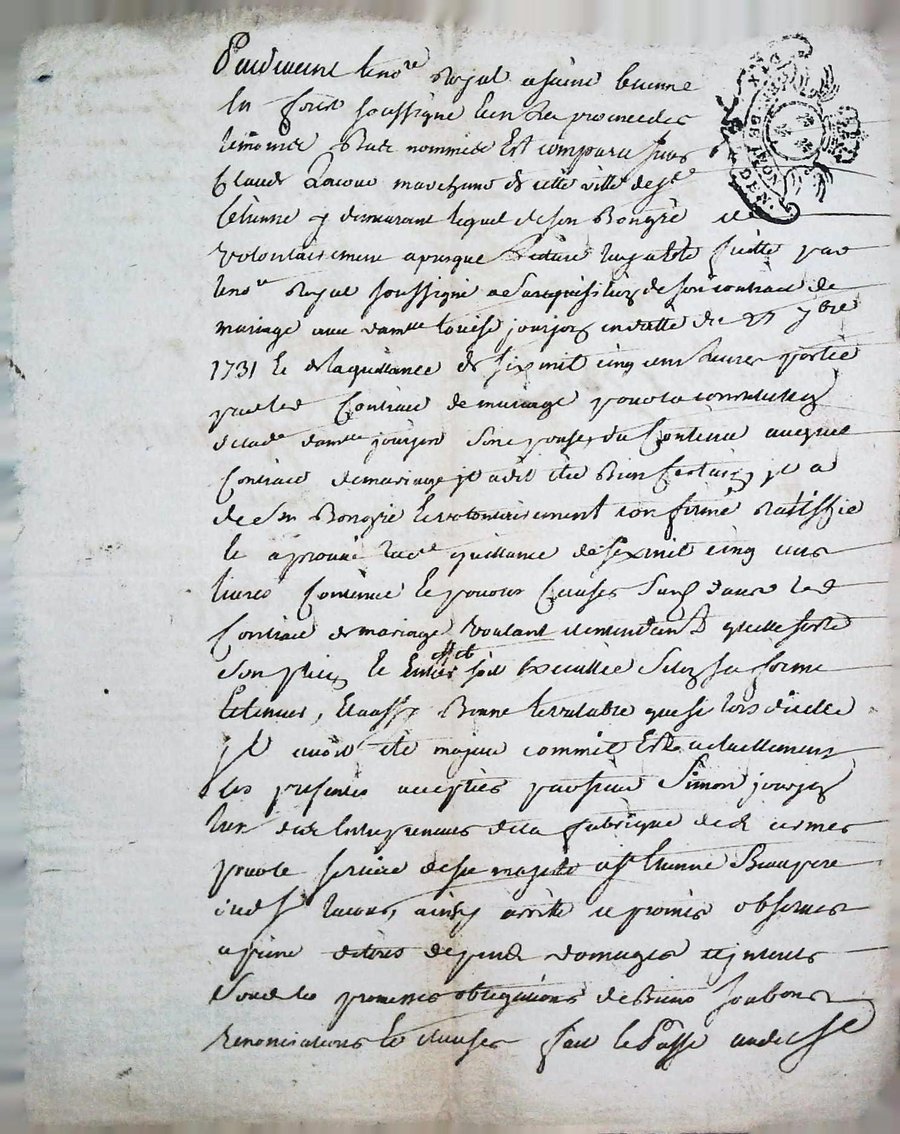 Pardevant le no.re Royal a saint Etienne
En forest soussigné Et en la presence des
temoins Bas nommés Est comparu sieur
Claude Lacour marchand de cette ville de s.t
Etienne y demeurant lequel de son Bon gré et
volontairement apres que lecture luy a été faitte par
le no.re Royal soussigné de son contrat de
mariage avec dam.lle Louise jourjon en datte du 27 7bre
1731 Et de la quittance de six mil cinq cens livres portée
par led. Contrat de mariage pour la constitution
de lad.e dam.lle jourjon son epouse du Contenu auquel
Contrat de mariage il a dit être Bien Certain, il a
de son Bon gré Et volontairement confirmé Ratiffié
Et aprouvé lad.e quittance de six mil cinq cens
livres Contenue Et pour les Causes dans led.
Contrat de mariage voulant et entendant qu'elle sorte
son plein Et Entier effet soit Executée selon sa forme
Et teneur, Et aussy Bonne Et valable que si lors d'icelle
il avoit été majeur comme il Est actuellement
les presentes acceptées par sieur Simon jourjon
l'un des Entrepreneurs de la fabrique des armes
pour le service de sa majesté a s.t Etienne Beaupere
dud. s.r Lacour, ainsy arrêté et promis observer
a peine de tous depens domages et interets
Sous les promesses obligations de Biens soubmissions
renonciations Et clauses fait Et Passé aud. s.t
GEN. DE LYON
DEN.